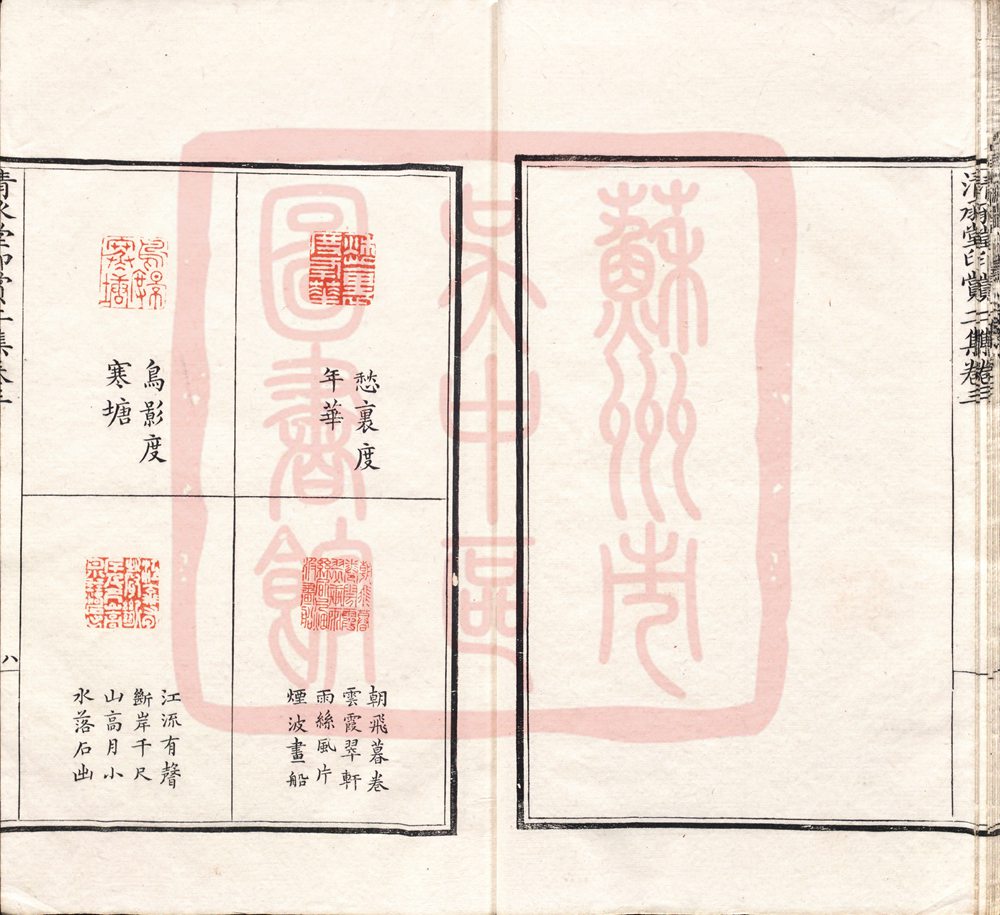 清承堂印賞二集卷三
蘇州市
吳中區
圖書館
愁裏度
年華
鳥影度
寒塘
朝飛暮卷
雲霞翠軒
雨絲風片
煙波畫船
江流有聲
斷岸千尺
山高月小
水落石出
清承堂印賞二集卷三
八